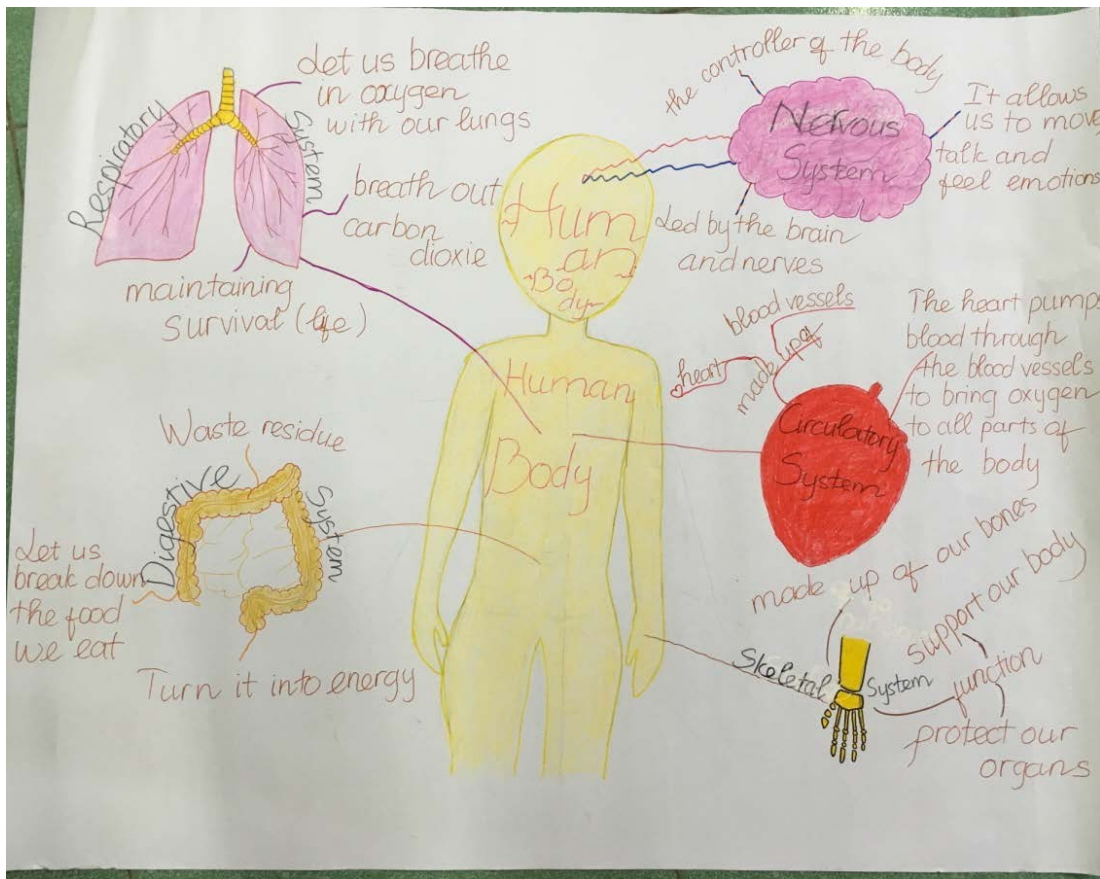 Respiratory System
Let us breathe
in oxygen
with our lungs
breath out
carbon
dioxie
maintaining
survival (life)
the controller of the body
Nervous
System
It allows
us to move
talk and
feel emotions
Led by the brain
and nerves
Hum
an
Bo
dy
Human
Body
blood vessels
heart
made up of
Circulatory
System
The heart pumps
blood through
the blood vessels
to bring oxygen
to all parts of
the body
Waste residue
Digestive System
Let us
break down
the food
we eat
Turn it into energy
made up of our bones
Skeletal System
support our body
function
protect our
organs